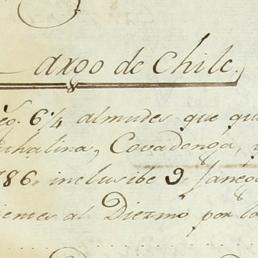 argo de Chile.
6¼ almudes que qu
Covadonga,
86, inclusibe 9 fanega
al Diezmo por la